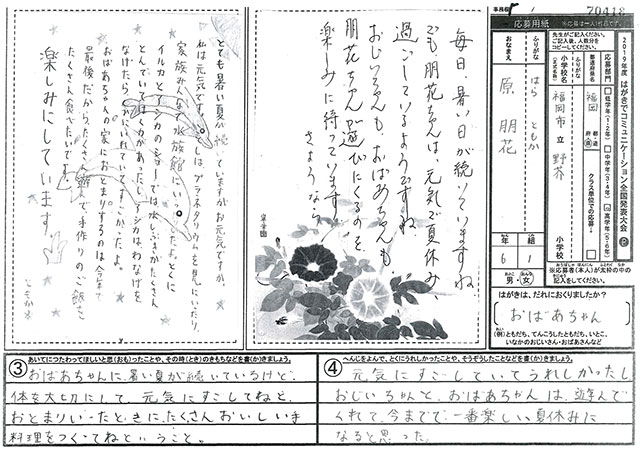 事務局
70418
応募用紙
※応募は一人1作品です。
先生がご記入ください。
ご記入後、人数分を
コピーしてください。
2019年度 はがきでコミュニケーション全国発表大会
応募部門
低学年(1・2年)
中学年(3・4年)
高学年(5・6年)
都道府県名
福岡
都・道
府・県
クラス単位での応募
ふりがな
小学校名
(正式名称)
福岡市立 野芥
小学校
ふりがな
はら ともか
おなまえ
原 朋花
年
6
組
1
男・女
※応募者(本人)が太枠の中の
記入をしてください。
はがきは、だれにおくりましたか?
おばあちゃん
(例)ともだち、てんこうしたともだち、いとこ、
いなかのおじいさん・おばあさんなど
毎日、暑い日が続いていますね。
でも朋花ちゃんは、元気で夏休み
過ごしているようですね。
おじいちゃんも、おばあちゃんも
朋花ちゃんが遊びにくるのを、
楽しみに待っています。
さようなら
とても暑い夏が続いていますがお元気ですか。
私は元気です。
プラネタリウムを見にいったり、
家族みんなで水族館にいっ
イルカとアシカのショーでは水しぶきがたくさん
とんで
アシカはわなげを
なげたら
すごかったよ。
おばあちゃんの家におとまりするのは今年で
最後だから、たくさん遊んで手作りのご飯を
たくさん食べたいです。
楽しみにしています。
ともか
③
あいてにつたわってほしいと思(おも)ったことや、その時(とき)のきもちなどを書(か)きましょう。
おばあちゃんに、暑い夏が続いているけど、
体を大切にして、元気にすごしてねと、
おとまりいったときに、たくさんおいしい手
料理をつくってねということ。
④
へんじをよんで、とくにうれしかったことや、そうぞうしたことなどを書(か)きましょう。
元気にすごしていてうれしかったし、
おじいちゃんと、おばあちゃんは、遊んで
くれて、今までで、一番楽しい夏休みに
なると思った。